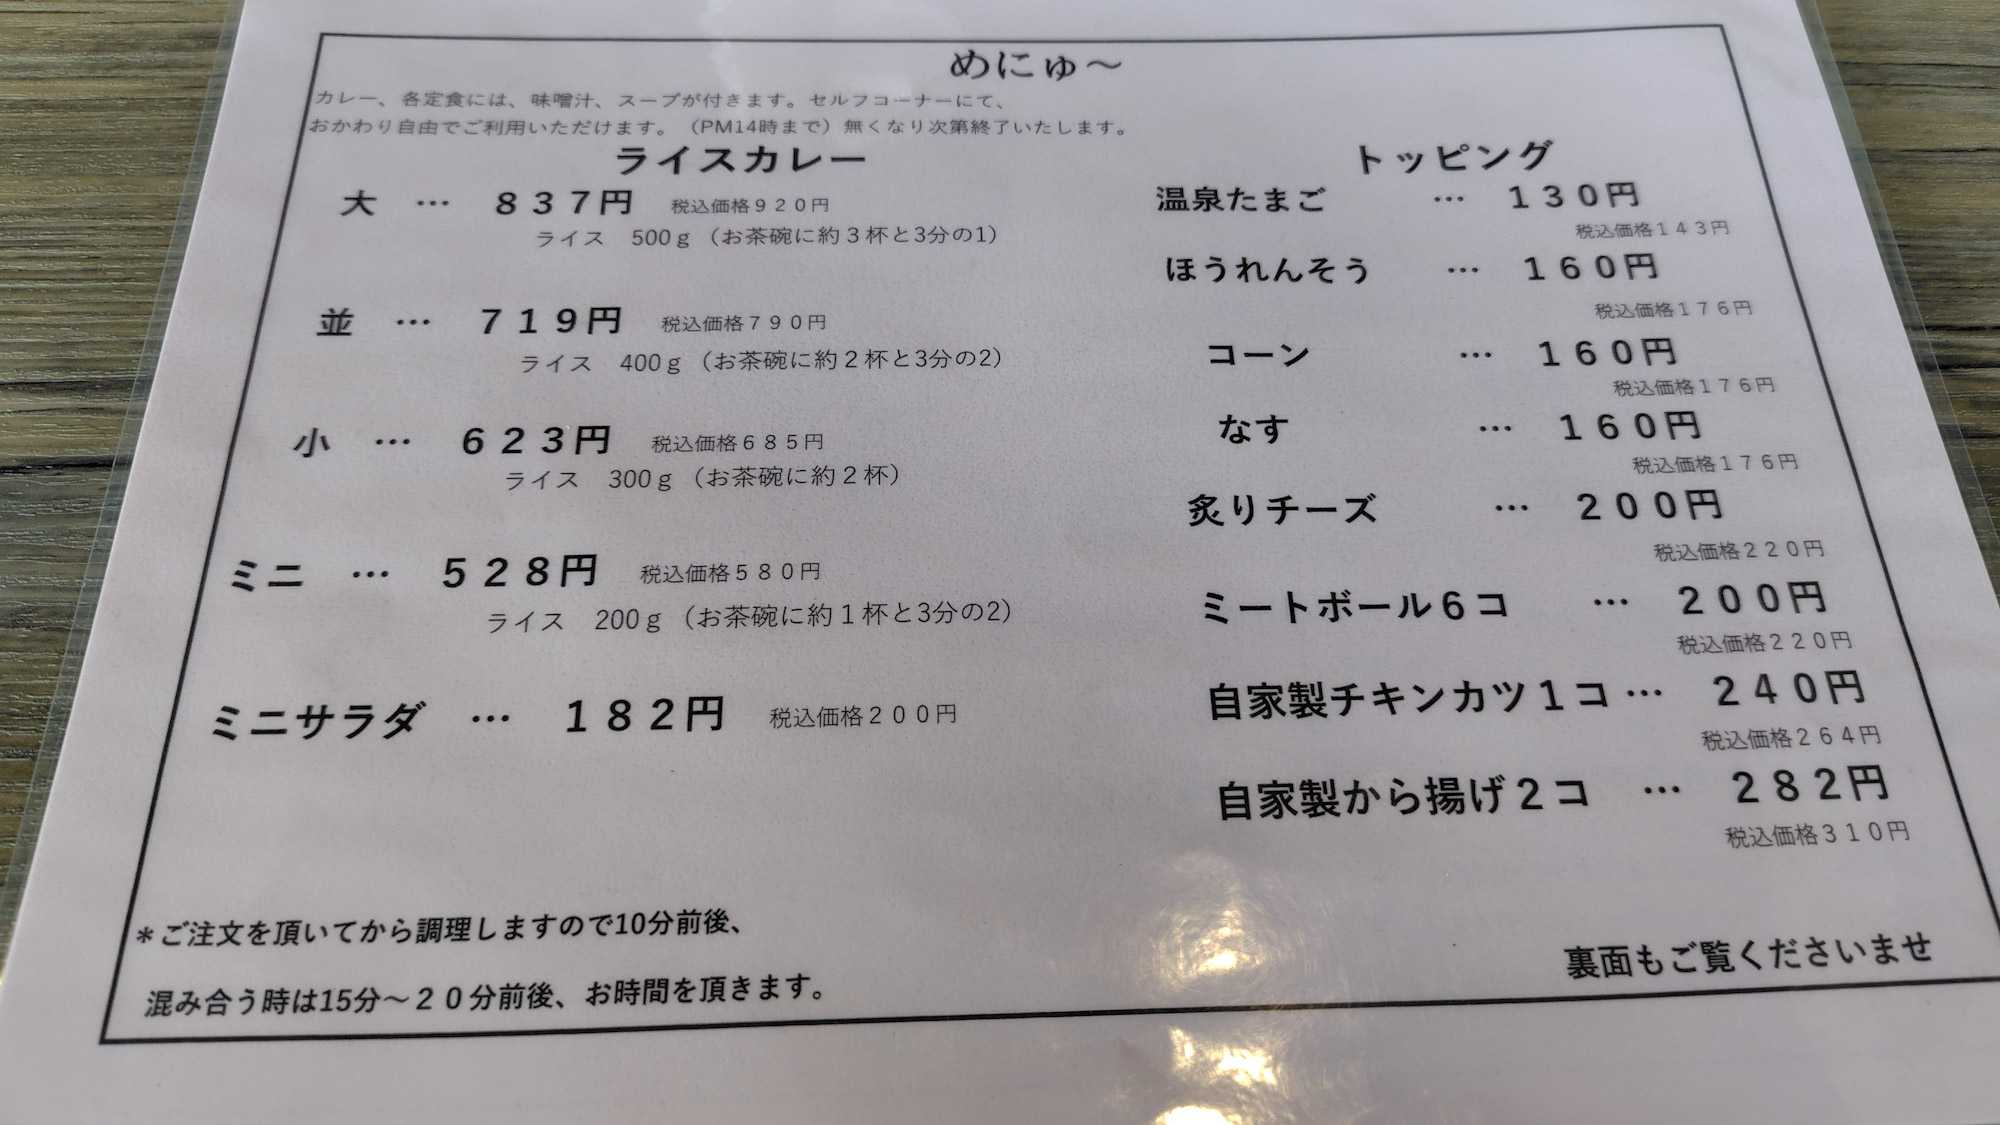 めにゅ～
カレー、各定食には、味噌汁、スープが付きます。セルフコーナーにて、
おかわり自由でご利用いただけます。（PM14時まで）無くなり次第終了いたします。
ライスカレー
大　…　８３７円　税込価格９２０円
ライス　500ｇ（お茶碗に約３杯と3分の1）
並　…　７１９円　税込価格７９０円
ライス　400ｇ（お茶碗に約２杯と3分の2）
小　…　６２３円　税込価格６８５円
ライス　300ｇ（お茶碗に約２杯）
ミニ　…　５２８円　税込価格５８０円
ライス　200ｇ（お茶碗に約１杯と3分の2）
ミニサラダ　…　１８２円　税込価格２００円
トッピング
温泉たまご　…　１３０円
税込価格１４３円
ほうれんそう　…　１６０円
税込価格１７６円
コーン　…　１６０円
税込価格１７６円
なす　…　１６０円
税込価格１７６円
炙りチーズ　…　２００円
税込価格２２０円
ミートボール６コ　…　２００円
税込価格２２０円
自家製チキンカツ１コ…　２４０円
税込価格２６４円
自家製から揚げ２コ　…　２８２円
税込価格３１０円
＊ご注文を頂いてから調理しますので10分前後、
混み合う時は15分～２０分前後、お時間を頂きます。
裏面もご覧くださいませ